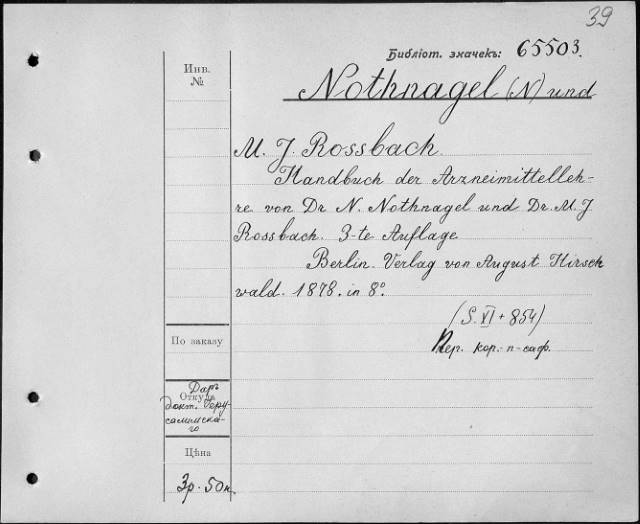 39
Библіот. значекъ: 65503.
Инв.
№
Nothnagel (N) und
M. J. Rossbach.
Handbuch der Arzneimittelleh-
re von Dr N. Nothnagel und Dr. M. J.
Rossbach. 3-te Auflage
Berlin. Verlag von August Hirsch
wald. 1878. in 8°.
(S. XI + 854)
Пер. кор. п-саф.
По заказу
Откуда
Даръ
докт. Іеру-
салимска-
го
Цѣна
3р. 50к.